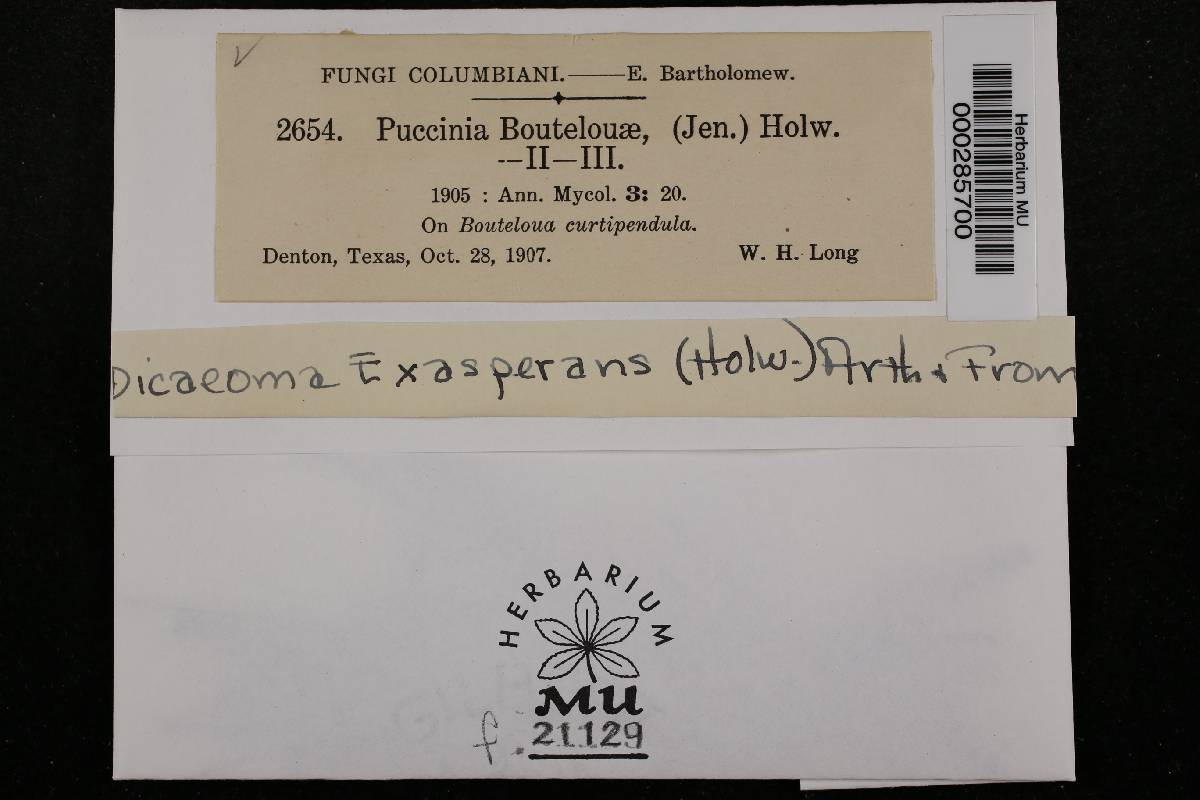 FUNGI COLUMBIANI.——E. Bartholomew.
2654. Puccinia Boutelouæ, (Jen.) Holw.
--II—III.
1905 : Ann. Mycol. 3: 20.
On Bouteloua curtipendula.
Denton, Texas, Oct. 28, 1907. W. H. Long
Herbarium MU
000285700
Dicaeoma Exasperans (Holw.) Arth & From
HERBARIUM
MU
f. 21129